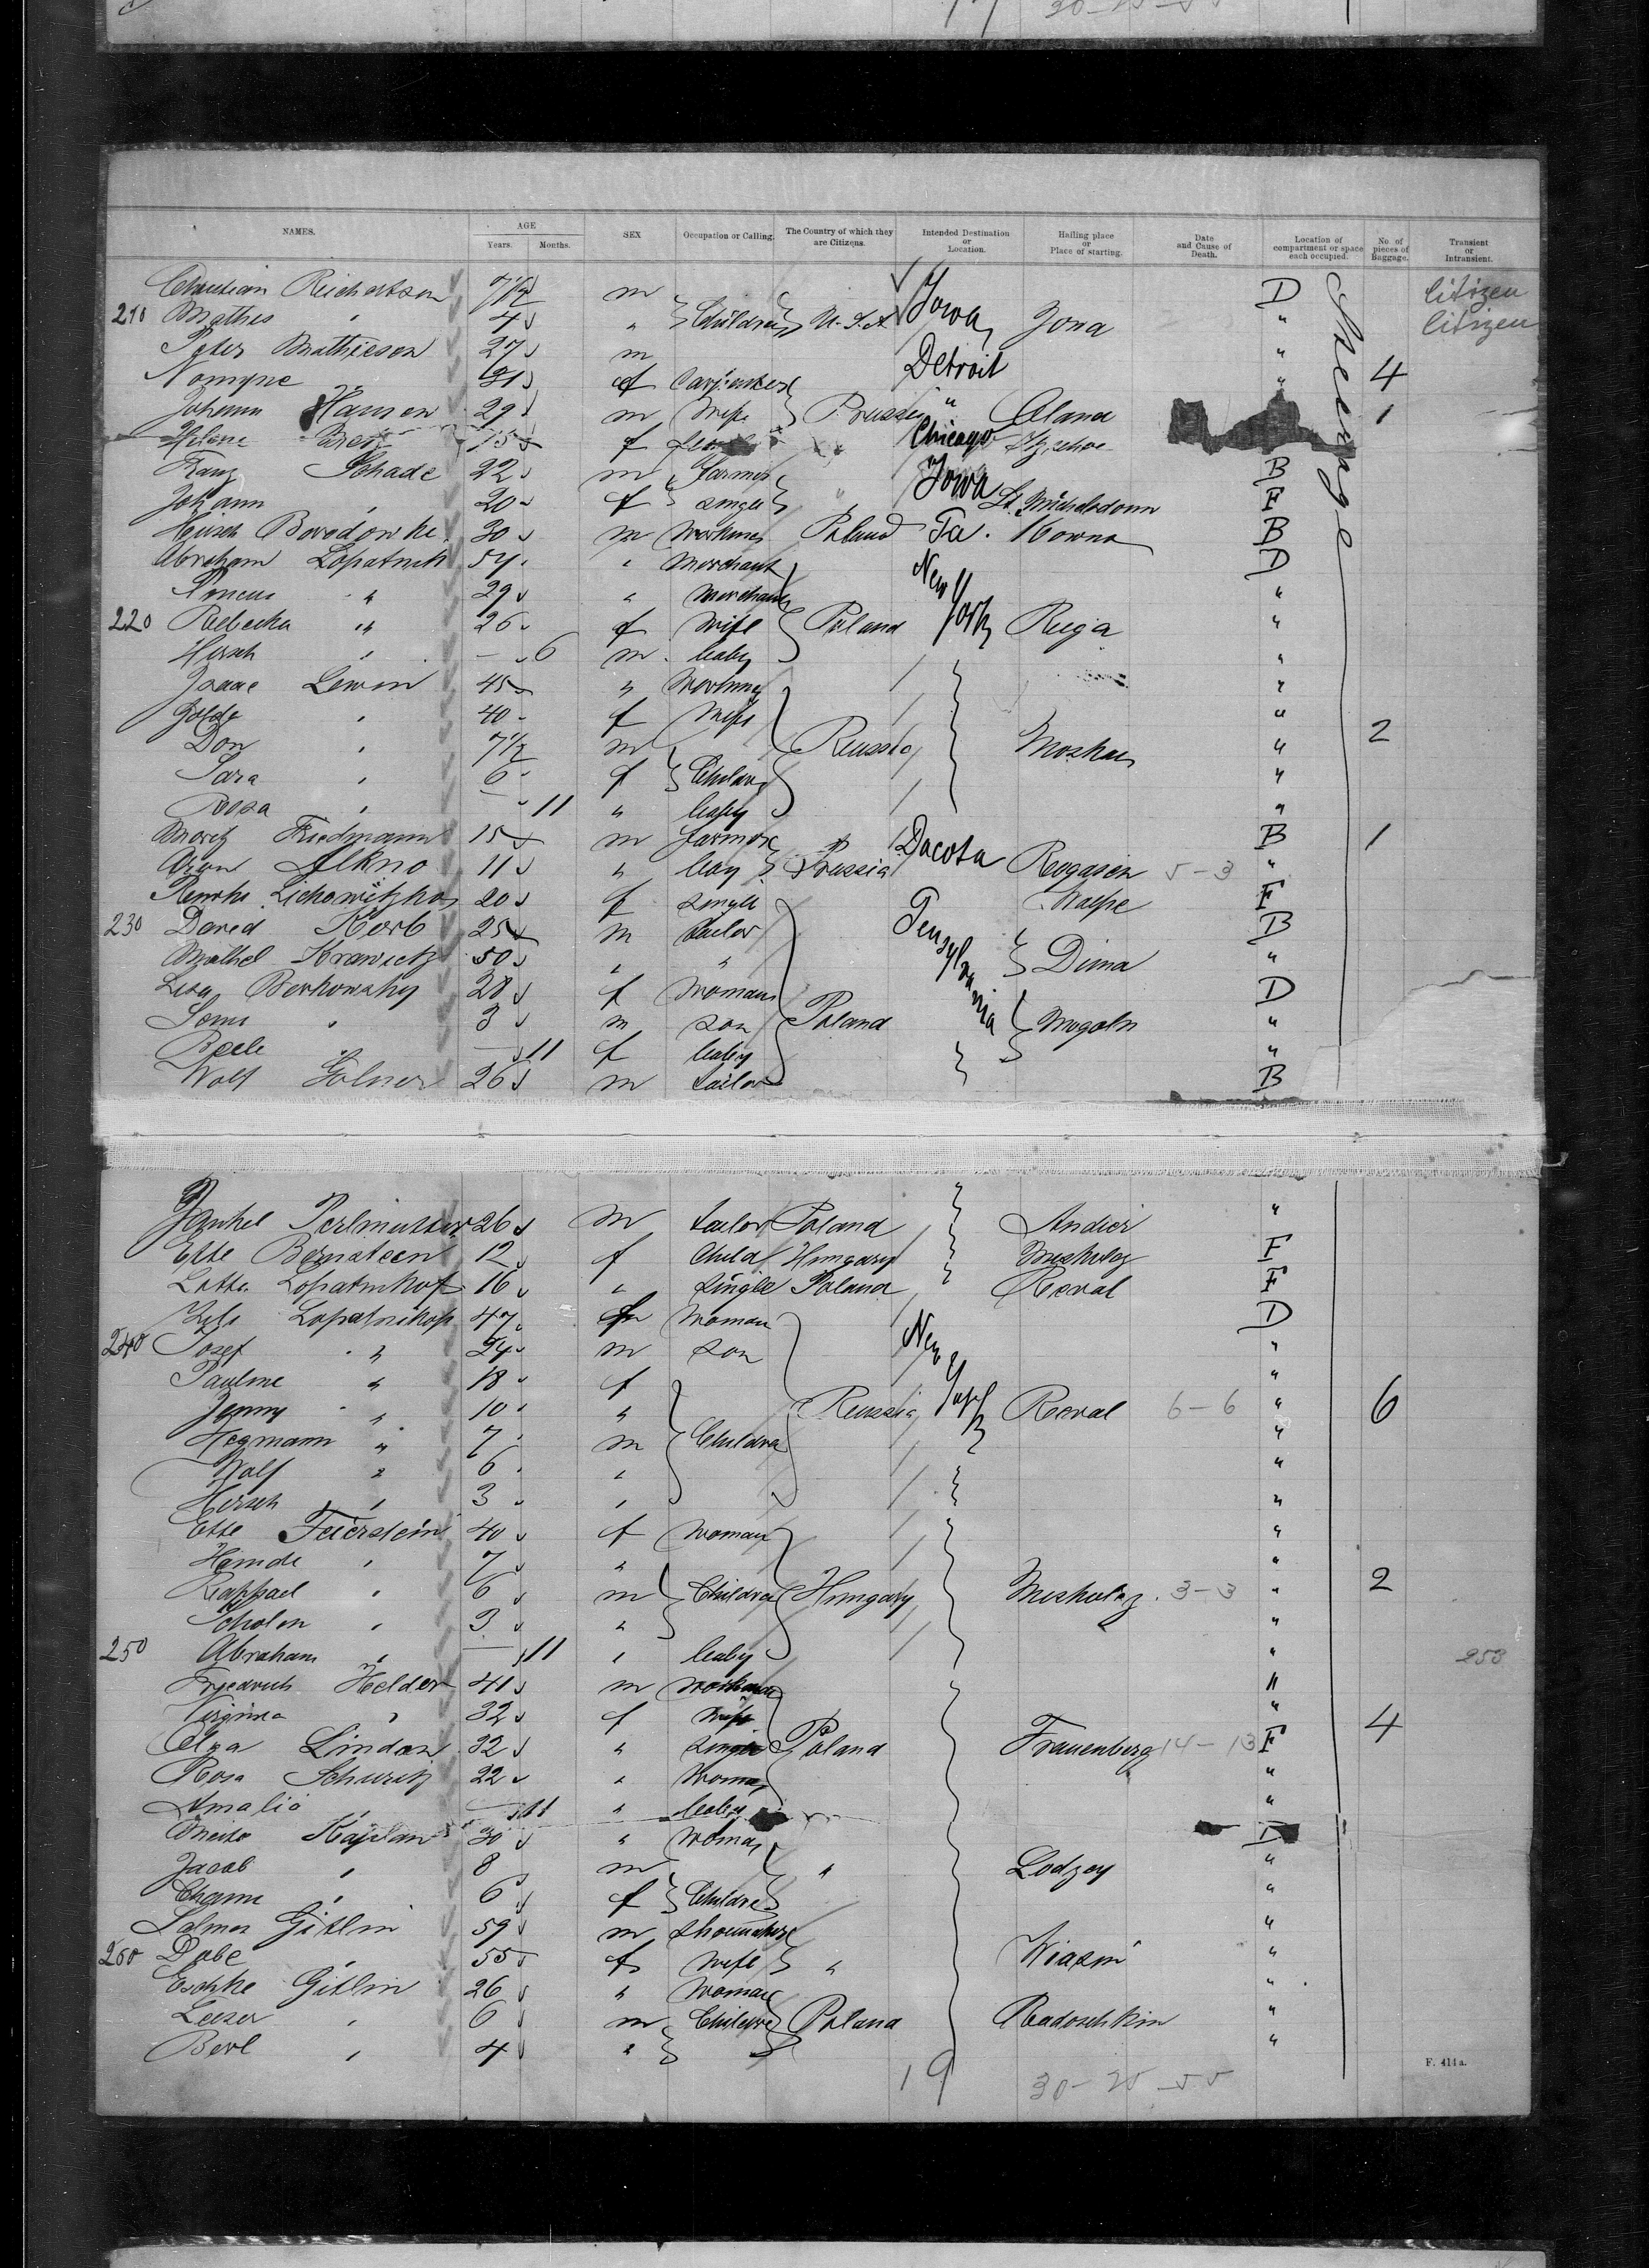 30-25-55
NAMES. AGE Years. Months. SEX Occupation or Calling. The Country of which they are Citizens. Intended Destination or Location. Hailing place or Place of starting. Date and Cause of Death. Location of compartment or space each occupied. No. of pieces of Baggage. Transient or Intransient.
Christian Reichertsen 7 1/2 m D Steerage Citizen
210 Mathis " 4 " Children U.S.A Iowa Jowa " Citizen
Peter Mathiesen 27 m Detroit "
Nomyne 31 f Carpenter " 4
Johann Hansen 29 m Wife Prussia " Aland 1
Helene 15 f Chicago
Franz Schade 22 m Farmer Iowa B
Johann " 20 f single " St. Michelsdonn F
Hirsch Borodowke 30 m Workman Poland Pa. Kowno B
Abraham Lopatnik 54 " Merchant D
Pincus " 29 " Merchant New "
220 Rebecka " 26 f Wife Poland York Riga "
Hirsch " — 6 m baby "
Isaac Lewin 45 " Workman "
Golde " 40 f Wife "
Don " 7 1/2 m Russia Moskau " 2
Sara " 6 f Children "
Rosa " — 11 " baby "
Moritz Friedmann 15 m farmer Dacota B 1
Aron Alkno 11 " boy Prussia Rogasen 5-3 "
20 f single F
230 David Korb 25 m tailor Pensylvania B
Krawietz 50 " " Dima "
Lisa Berkowsky 28 f Woman D
" 3 m son Poland "
Beele " — 11 f baby "
Wolf Golner 26 m tailor B
Jankel Perlmutter 26 m tailor Poland "
Ette Bernstein 12 f Child Hungary Miskolcz F
Lotte Lopatnikof 16 " single Poland Reval F
Lopatnikoff 47 f Woman D
240 Josef " 24 m son New "
Pauline " 18 f "
Jenny " 10 " Russia York Reval 6-6 " 6
Hegmann " 7 m Children "
Wolf " 6 " "
Hirsch " 3 " "
Ette Feierstein 40 f Woman "
Hainde " 7 " "
Raphael " 6 m Children Hungary Miskolcz 3-3 " 2
Scholem " 3 " "
250 Abraham " — 11 " baby " 253
Friedrich Helder 41 m workman "
Virginia " 32 f Wife " 4
Elza Lindon 32 " single Poland Frauenberg 14-13 F
Rosa Schuritz 22 " Woman "
Amalie " — 11 " baby "
Kaplan 30 " Woman D
Jacob " 8 m " Lodzey "
" 6 f Children "
Salmon Gitlin 59 m shoemaker "
260 Dobe " 55 f Wife " Wiasin "
Eschke Gitlin 26 " Woman "
Leeser " 6 m Children Poland Radoschkin "
Berl " 4 " "
19 30-25-55
F. 414 a.